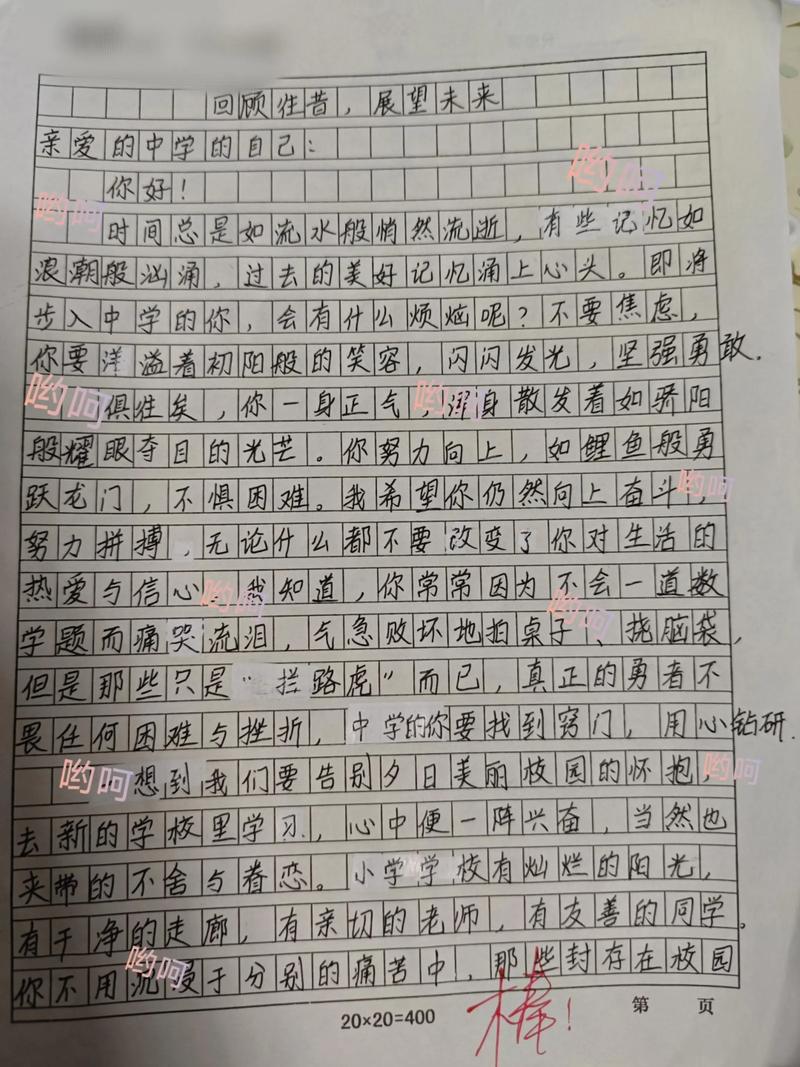 回顾往昔，展望未来
亲爱的中学的自己：
你好！
时间总是如流水般悄然流逝，有些记忆如
浪潮般汹涌，过去的美好记忆涌上心头。即将
步入中学的你，会有什么烦恼呢？不要焦虑，
你要洋溢着初阳般的笑容，闪闪发光，坚强勇敢.
俱往矣，你一身正气，浑身散发着如骄阳
般耀眼夺目的光芒。你努力向上，如鲤鱼般勇
跃龙门，不惧困难。我希望你仍然向上奋斗，
努力拼搏，无论什么都不要改变了你对生活的
热爱与信心 我知道，你常常因为不会一道数
学题而痛哭流泪，气急败坏地拍桌子、挠脑袋，
但是那些只是“拦路虎”而已，真正的勇者不
畏任何困难与挫折，中学的你要找到窍门，用心钻研.
一想到我们要告别夕日美丽校园的怀抱，
去新的学校里学习，心中便一阵兴奋，当然也
夹带的不舍与眷恋。小学学校有灿烂的阳光，
有干净的走廊，有亲切的老师，有友善的同学。
你不用沉浸于分别的痛苦中，那些封存在校园
20×20=400
第 页
棒！
哟呵
哟呵
哟呵
哟呵
哟呵
哟呵
哟呵
哟呵
哟呵
哟呵